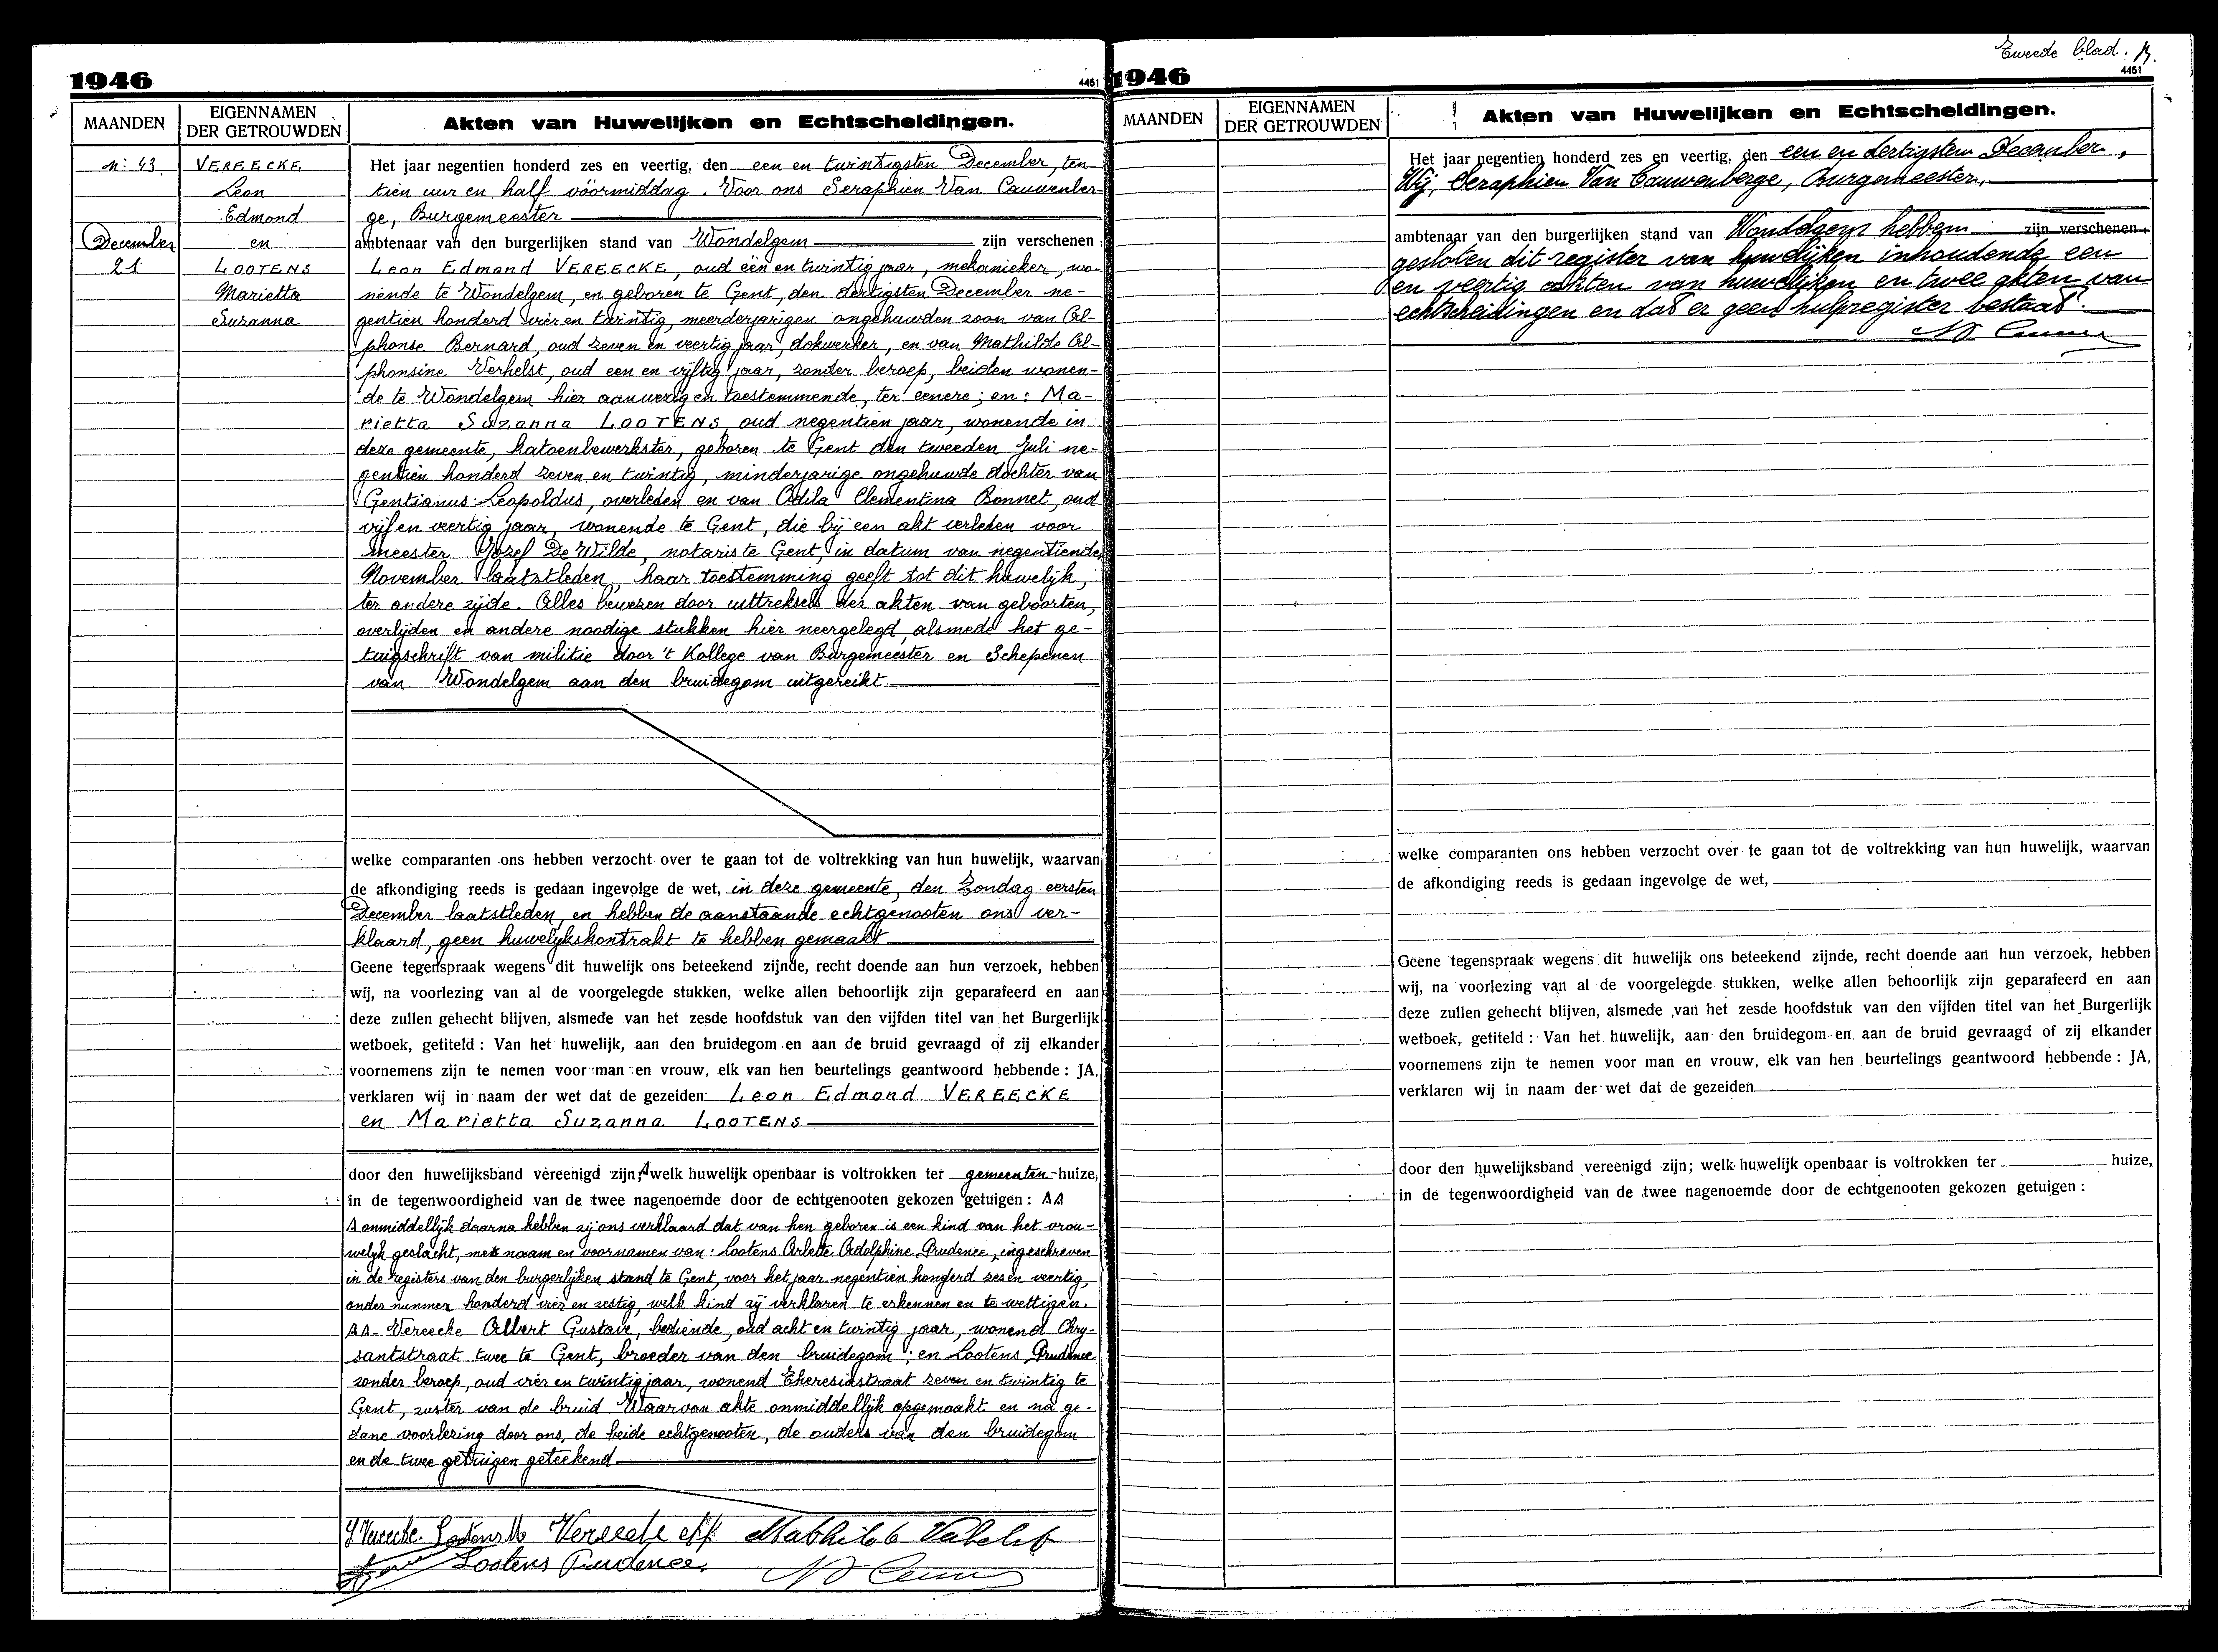 1946
4461
MAANDEN
EIGENNAMEN
DER GETROUWDEN
Akten van Huwelijken en Echtscheidingen.
N: 43.
VEREECKE
Leon
Edmond
December
en
21
LOOTENS
Marietta
Suzanna
Het jaar negentien honderd zes en veertig, den een en twintigsten December, ten
tien uur en half vóórmiddag. Voor ons Seraphien Van Cauwenber-
ge, Burgemeester
ambtenaar van den burgerlijken stand van Wondelgem zijn verschenen :
Leon Edmond VEREECKE, oud één en twintig jaar, mekanieker, wo-
nende te Wondelgem, en geboren te Gent, den dertigsten December ne-
gentien honderd vier en twintig, meerderjarigen ongehuwden zoon van Al-
phonse Bernard, oud zeven en veertig jaar, dokwerker, en van Mathilde Al-
phonsine Verhelst, oud een en vijftig jaar, zonder beroep, beiden wonen-
de te Wondelgem hier aanwezig en toestemmende, ter eenere; en: Ma-
rietta Suzanna LOOTENS, oud negentien jaar, wonende in
deze gemeente, katoenbewerkster, geboren te Gent den tweeden Juli ne-
gentien honderd zeven en twintig, minderjarige ongehuwde dochter van
Gentianus Leopoldus, overleden en van Odila Clementina Bonnet, oud
vijf en veertig jaar, wonende te Gent, die bij een akt verleden voor
meester Jozef De Wilde, notaris te Gent, in datum van negentienden
November laatstleden, haar toestemming geeft tot dit huwelijk,
ter andere zijde. Alles bewezen door uittreksels der akten van geboorten,
overlijden en andere noodige stukken hier neergelegd, alsmede het ge-
tuigschrift van militie door 't Kollege van Burgemeester en Schepenen
van Wondelgem aan den bruidegom uitgereikt
welke comparanten ons hebben verzocht over te gaan tot de voltrekking van hun huwelijk, waarvan
de afkondiging reeds is gedaan ingevolge de wet, in deze gemeente, den Zondag eersten
December laatstleden, en hebben de aanstaande echtgenooten ons ver-
klaard, geen huwelijkskontrakt te hebben gemaakt
Geene tegenspraak wegens dit huwelijk ons beteekend zijnde, recht doende aan hun verzoek, hebben
wij, na voorlezing van al de voorgelegde stukken, welke allen behoorlijk zijn geparafeerd en aan
deze zullen gehecht blijven, alsmede van het zesde hoofdstuk van den vijfden titel van het Burgerlijk
wetboek, getiteld : Van het huwelijk, aan den bruidegom en aan de bruid gevraagd of zij elkander
voornemens zijn te nemen voor man en vrouw, elk van hen beurtelings geantwoord hebbende : JA,
verklaren wij in naam der wet dat de gezeiden Leon Edmond VEREECKE
en Marietta Suzanna LOOTENS
door den huwelijksband vereenigd zijn; A welk huwelijk openbaar is voltrokken ter gemeenten-huize,
in de tegenwoordigheid van de twee nagenoemde door de echtgenooten gekozen getuigen : AA
A onmiddellijk daarna hebben zij ons verklaard dat van hen geboren is een kind van het vrou-
welijk geslacht, met naam en voornamen van: Lootens Arlette Adolphine Prudence, ingeschreven
in de registers van den burgerlijken stand te Gent, voor het jaar negentien honderd zes en veertig,
onder nummer honderd vier en zestig, welk kind zij verklaren te erkennen en te wettigen.
AA- Vereecke Albert Gustave, bediende, oud acht en twintig jaar, wonend Chry-
santstraat twee te Gent, broeder van den bruidegom; en Lootens Prudence
zonder beroep, oud vier en twintig jaar, wonend Theresiastraat zeven en twintig te
Gent, zuster van de bruid. Waarvan akte onmiddellijk opgemaakt en na ge-
dane voorlezing door ons, de beide echtgenooten, de ouders van den bruidegom
en de twee getuigen geteekend
Vereecke. Lootens M Vereecke Mathilde Verhelst
Lootens Prudence.
Tweede blad.
1946
4461
MAANDEN
EIGENNAMEN
DER GETROUWDEN
Akten van Huwelijken en Echtscheidingen.
Het jaar negentien honderd zes en veertig, den een en dertigsten December,
Wij, Seraphien Van Cauwenberge, Burgemeester,
ambtenaar van den burgerlijken stand van Wondelgem hebben zijn verschenen :
gesloten dit register van huwelijken inhoudende een
en veertig akten van huwelijken en twee akten van
echtscheidingen en dat er geen hulpregister bestaat.
welke comparanten ons hebben verzocht over te gaan tot de voltrekking van hun huwelijk, waarvan
de afkondiging reeds is gedaan ingevolge de wet,
Geene tegenspraak wegens dit huwelijk ons beteekend zijnde, recht doende aan hun verzoek, hebben
wij, na voorlezing van al de voorgelegde stukken, welke allen behoorlijk zijn geparafeerd en aan
deze zullen gehecht blijven, alsmede van het zesde hoofdstuk van den vijfden titel van het Burgerlijk
wetboek, getiteld : Van het huwelijk, aan den bruidegom en aan de bruid gevraagd of zij elkander
voornemens zijn te nemen voor man en vrouw, elk van hen beurtelings geantwoord hebbende : JA,
verklaren wij in naam der wet dat de gezeiden
door den huwelijksband vereenigd zijn; welk huwelijk openbaar is voltrokken ter huize,
in de tegenwoordigheid van de twee nagenoemde door de echtgenooten gekozen getuigen :